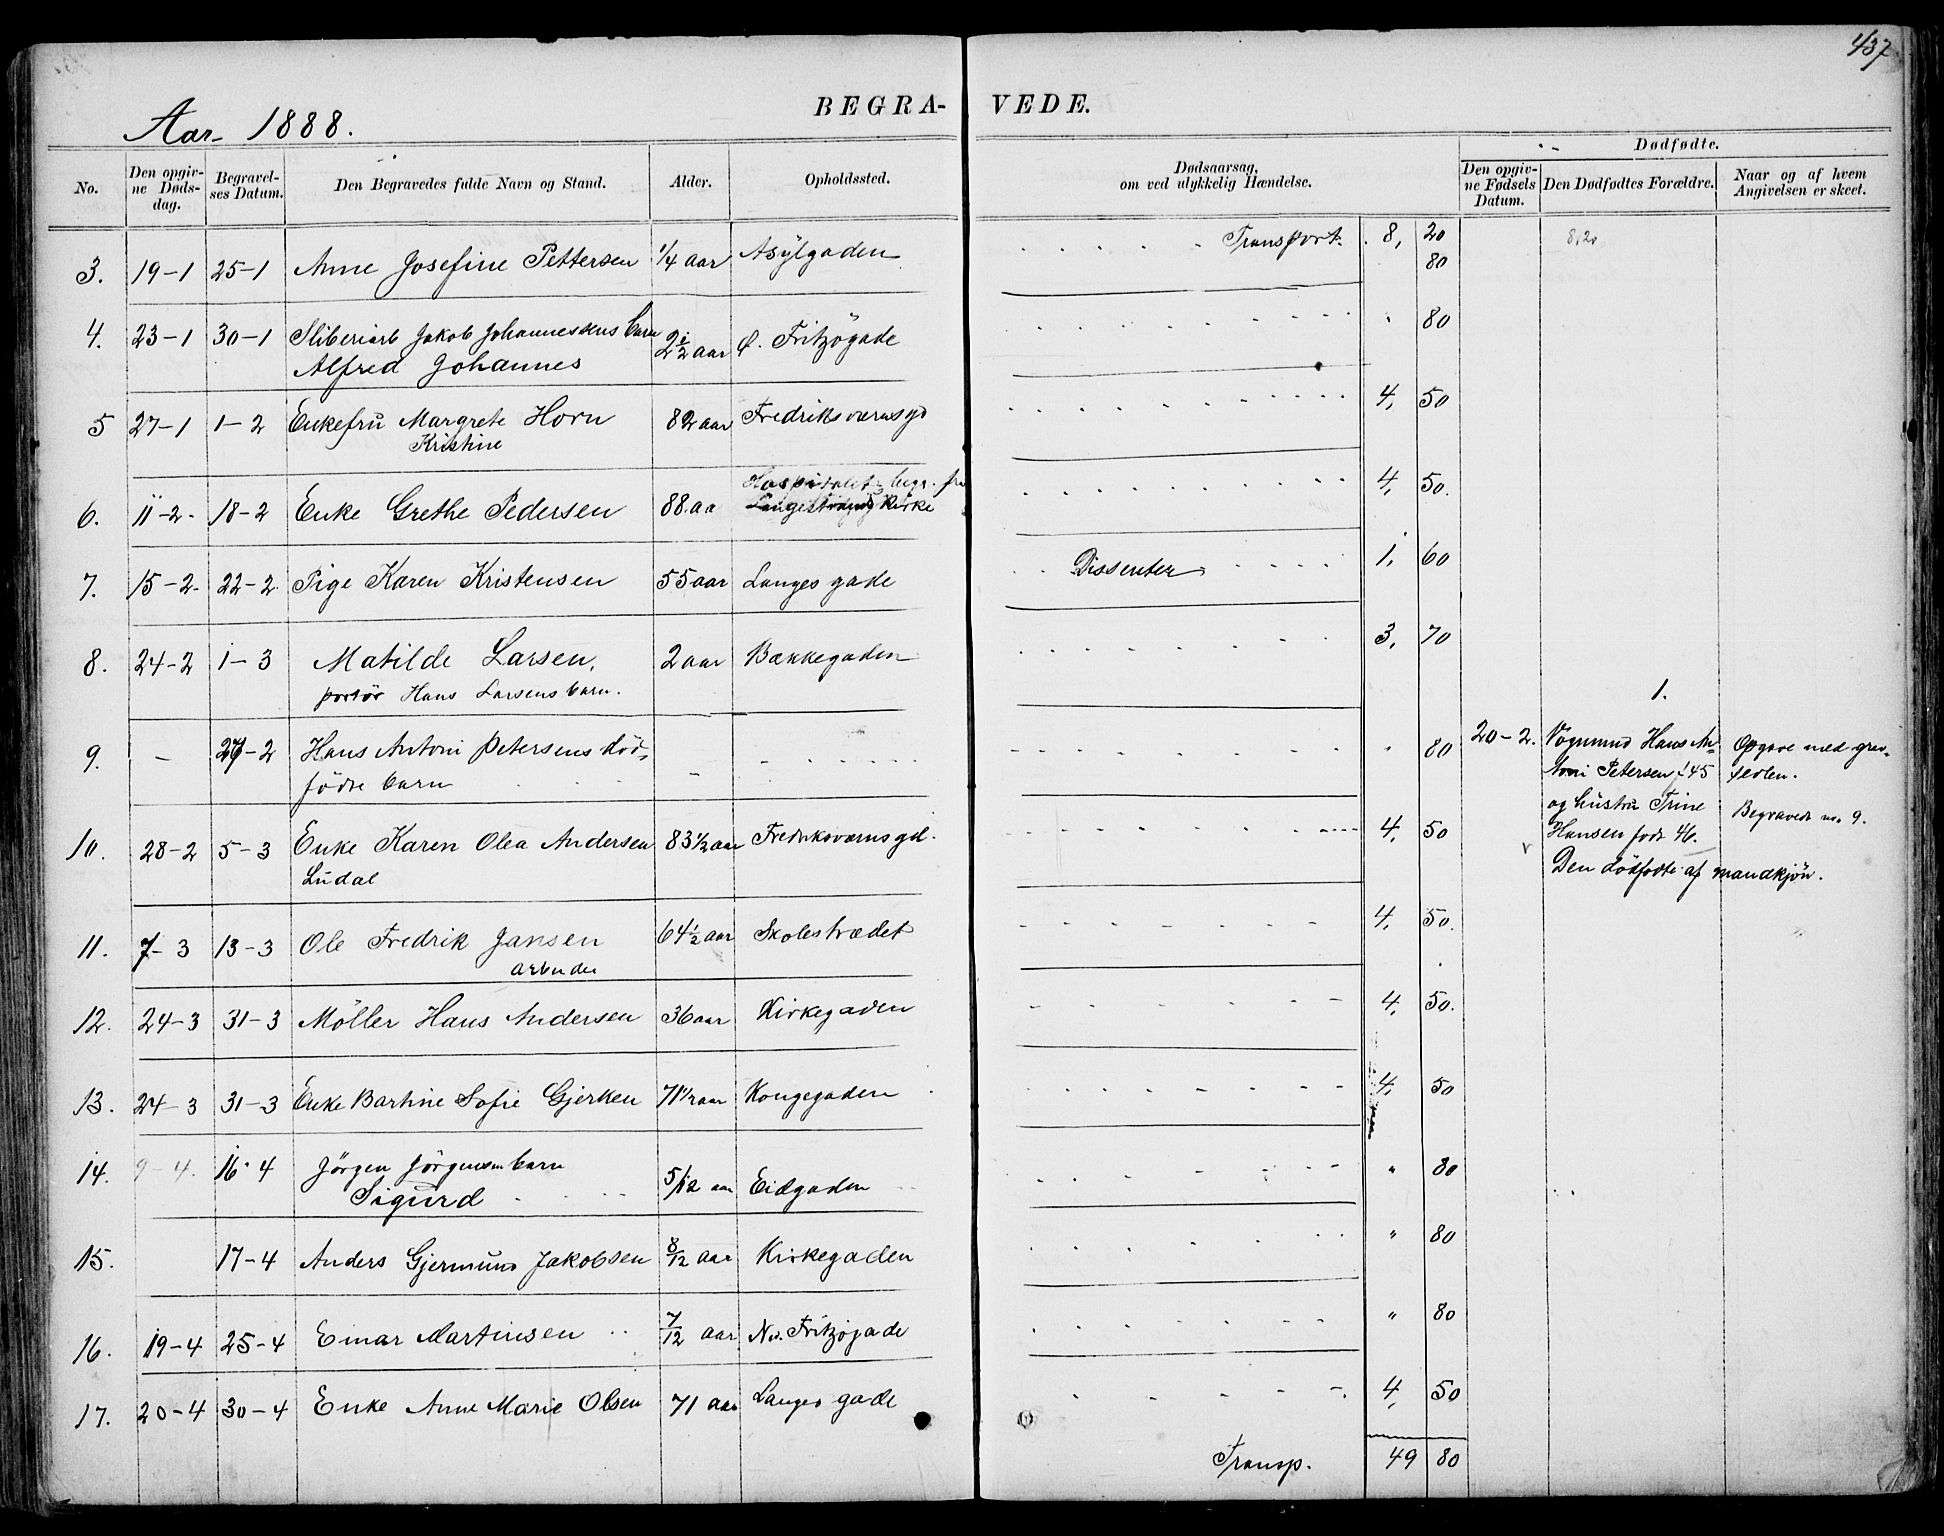 437
BEGRAVEDE.
Aar 1888.
No. Den opgivne Dødsdag. Begravelses Datum. Den Begravedes fulde Navn og Stand. Alder. Opholdssted. Dødsaarsag, om ved ulykkelig Hændelse. Dødfødte. Den opgivne Fødsels Datum. Den Dødfødtes Forældre. Naar og af hvem Angivelsen er skeet.
Transport. 8, 20 8,20
3. 19-1 25-1 Anne Josefine Pettersen 1/4 aar Asylgaden 80
4. 23-1 30-1 Sliberiarb Jakob Johannessens barn 2 1/2 aar Ø. Fritzøgade " 80
Alfred Johannes
5 27-1 1-2 Enkefru Margrete Horn 82 aar Fredriksværnsgd 4, 50
Kristine
6. 11-2. 18-2 Enke Grethe Pedersen 88. aa Hospitalet, begr. fra 4, 50.
Langestrands Kirke
7. 15-2. 22-2 Pige Karen Kristensen 55 aar Langes gade Dissenter 1, 60
8. 24-2 1-3 Matilde Larsen, 2 aar Bækkegaden 3, 70
portør Hans Larsens barn.
1.
9. - 27-2 Hans Antoni Petersens död- - " 80 20-2. Vognmand Hans An- Opgave med grav-
födte barn toni Petersen f. 45 sedlen.
og hustru Trine Begravede no. 9.
Hansen födt 46.
Den dödfödte af mandkjön.
10. 28-2 5-3 Enke Karen Olea Andersen 83 1/2 aar Fredriksværnsgd. 4, 50
Ludal
11. 7-3 13-3 Ole Fredrik Jansen 64 1/2 aar Skolestrædet 4, 50.
arbeider
12. 24-3 31-3 Möller Hans Andersen 36 aar Kirkegaden 4, 50.
13. 24-3 31-3 Enke Bartine Sofie Gjerken 71 1/2 aar Kongegaden 4, 50
14. 9-4. 16-4 Jörgen Jörgensen barn 5/12 aar Eidgaden " 80
Sigurd
15. 17-4 Anders Gjermund Jakobsen 8/12 aar Kirkegaden " 80
16. 19-4 25-4 Einar Martinsen 7/12 aar N. Fritzøgade " 80
17. 20-4 30-4 Enke Anne Marie Olsen 71 aar Langes gade 4, 50
Transp. 49 80